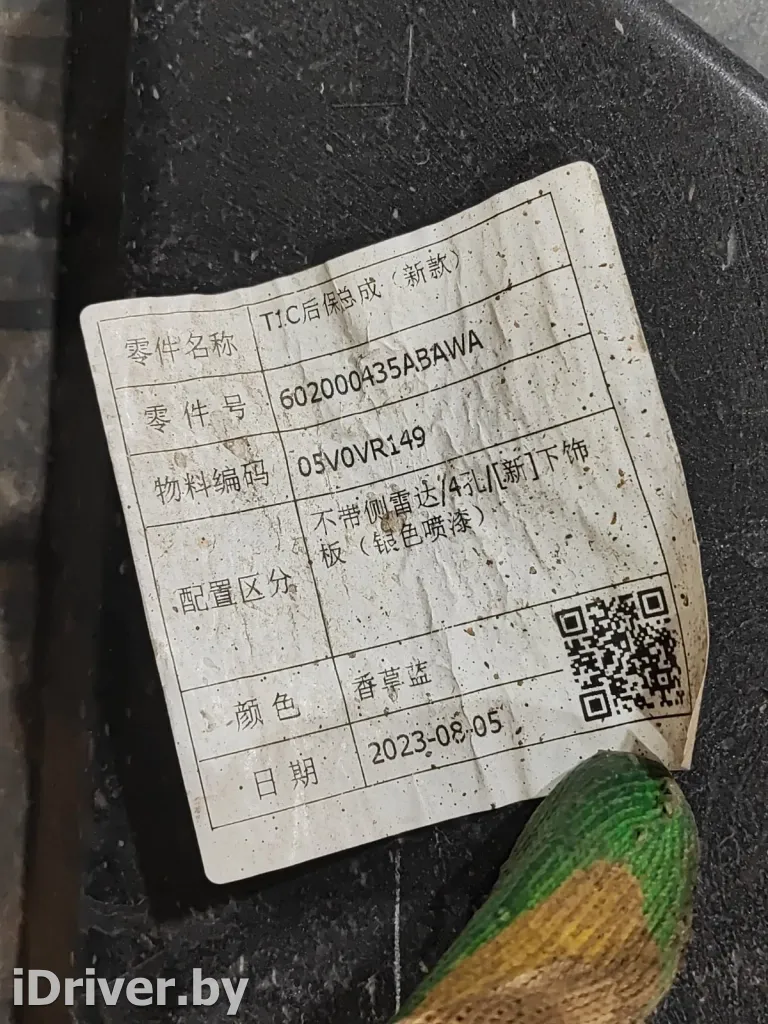 零件名称 T1C后保总成（新款）
零件号 602000435ABAWA
物料编码 05V0VR149
配置区分 不带侧雷达/4孔/[新]下饰
板（银色喷漆）
颜色 香草蓝
日期 2023-08-05
iDriver.by